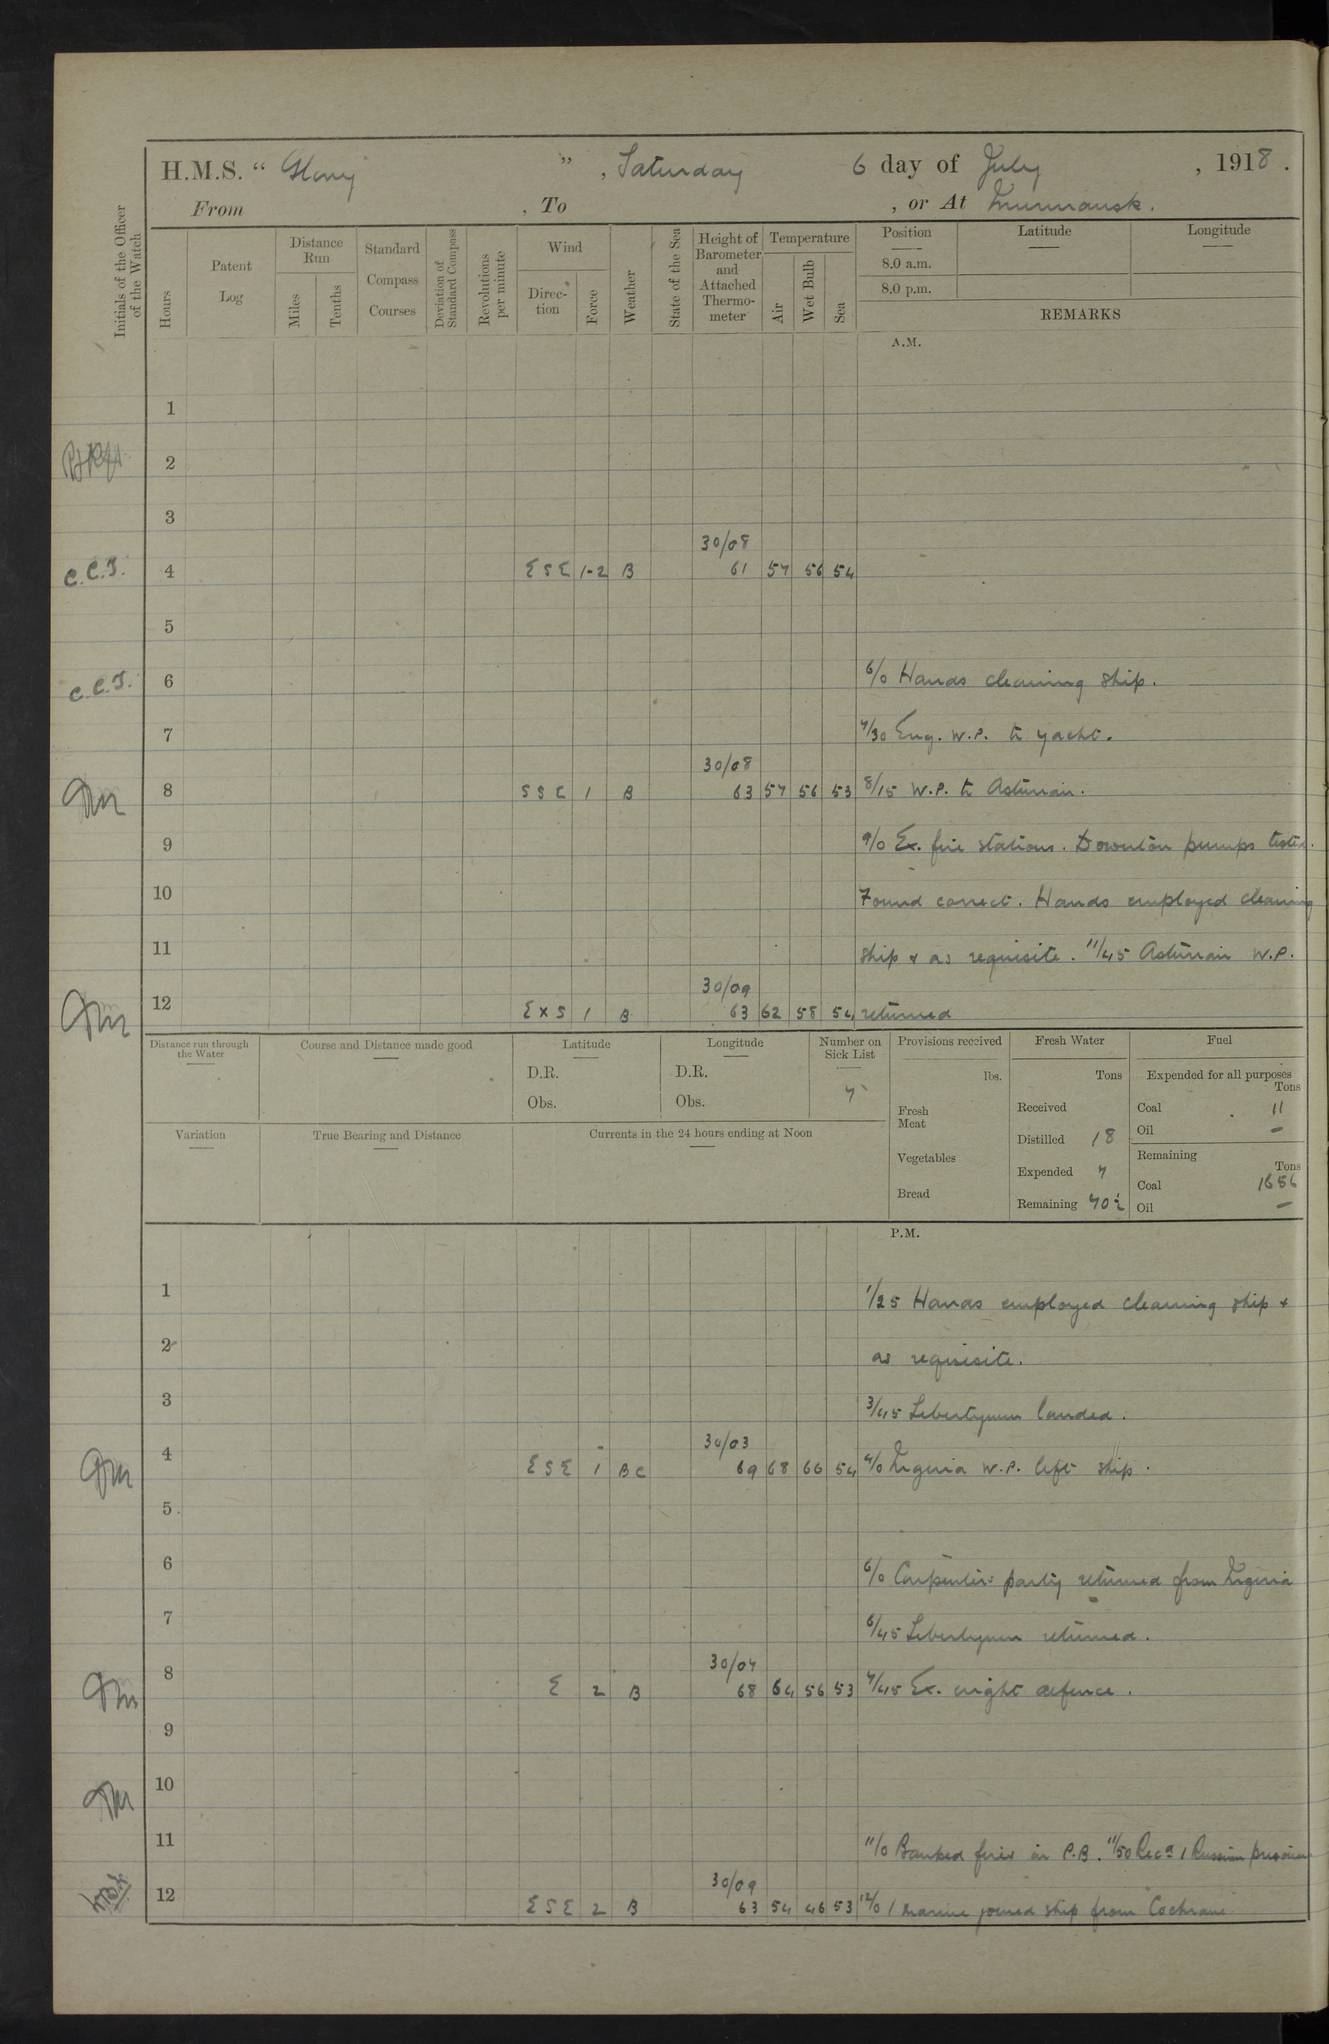 H.M.S. “ Glory ”, Saturday 6 day of July, 1918.
From , To , or At Murmansk.
Initials of the Officer of the Watch
Hours
Patent Log
Distance Run
Miles
Tenths
Standard Compass Courses
Deviation of Standard Compass
Revolutions per minute
Wind
Direction
Force
Weather
State of the Sea
Height of Barometer and Attached Thermometer
Temperature
Air
Wet Bulb
Sea
Position
8.0 a.m.
8.0 p.m.
Latitude
Longitude
REMARKS
A.M.
1
2
3
30/08
C.C.J. 4 ESE 1-2 B 61 57 56 54
5
C.C.J. 6 6/0 Hands cleaning ship.
7 7/30 Eng. W.P. to yacht.
30/08
8 SSE 1 B 63 57 56 53 8/15 W.P. to Asturian.
9 9/0 Ex. fire stations. Downton pumps tested.
10 Found correct. Hands employed cleaning
11 ship & as requisite. 11/45 Asturian W.P.
30/09
12 E x S 1 B 63 62 58 54 returned
Distance run through the Water
Course and Distance made good
Latitude
D.R.
Obs.
Longitude
D.R.
Obs.
Number on Sick List
7
Provisions received
lbs.
Fresh Meat
Vegetables
Bread
Fresh Water
Tons
Received
Distilled 18
Expended 7
Remaining 70½
Fuel
Expended for all purposes
Tons
Coal 11
Oil –
Remaining
Tons
Coal 1656
Oil –
Variation
True Bearing and Distance
Currents in the 24 hours ending at Noon
P.M.
1 1/25 Hands employed cleaning ship &
2 as requisite.
3 3/45 Libertymen landed.
30/03
4 ESE 1 BC 69 68 60 54 4/0 Nigeria W.P. left ship.
5
6 6/0 Carpenters party returned from Nigeria
7 6/45 Libertymen returned.
30/07
8 E 2 B 68 64 56 53 7/45 Ex. night defence.
9
10
11 11/0 Banked fires in P.B. 11/50 Recd 1 Russian prisoner
30/09
12 ESE 2 B 63 54 46 53 12/0 1 marine joined ship from Cochrane